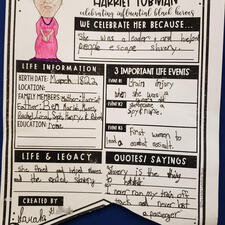 HARRIET TUBMAN
celebrating influential black heroes
WE CELEBRATE HER BECAUSE...
She was a leader and helped
people escape slavery.
LIFE INFORMATION
BIRTH DATE: March 1822
LOCATION:
FAMILY MEMBERS: Mother: Harriet
Father: Ben
Rachel, Linah, Soph, Henry, & Robert
EDUCATION: none
3 IMPORTANT LIFE EVENTS
EVENT #1 Brain injury
when she was
EVENT #2
Spy & nurse.
EVENT #3 First women to
lead a combat assault.
LIFE & LEGACY
She freed and helped slaves
and she ended slavery
QUOTES/ SAYINGS
Slavery is the
to hell
I never ran my train off
track and never lost
a passenger
CREATED BY